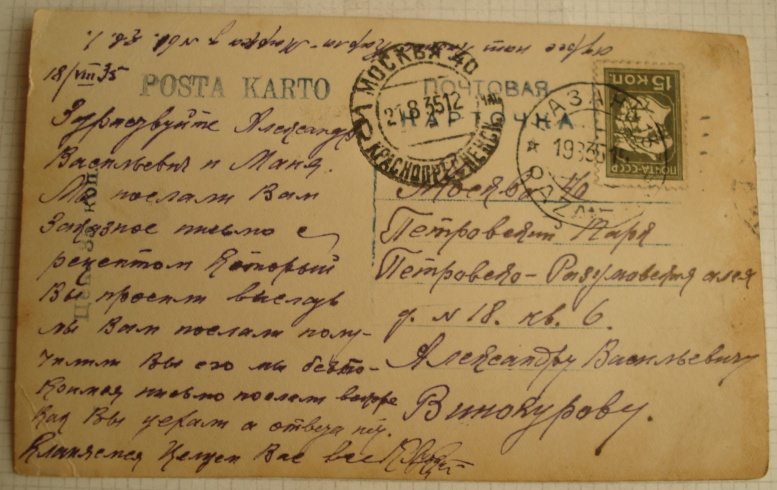 18/VIII 35
POSTA KARTO
ПОЧТОВАЯ
КАРТОЧКА
МОСКВА 40
21.8.35 12
КРАСНОПРЕСНЕНСК
15 КОП.
ПОЧТА СССР
КАЗАНЬ
19 8 35
Цена 35 коп.
Здраствуйте Александр
Васильевич и Маня.
Мы послали Вам
Заказное письмо с
рецептом Который
Вы просили выслать
мы Вам послали полу-
чили Вы его мы беспо-
коимся письмо послали
как Вы уехали а ответа нту.
Кланяемся Целуем Вас все
Москва 40
Петровский Парк
Петровско-Разумовская алея
д. N 18. кв. 6.
Александру Васильевичу
Винокурову.